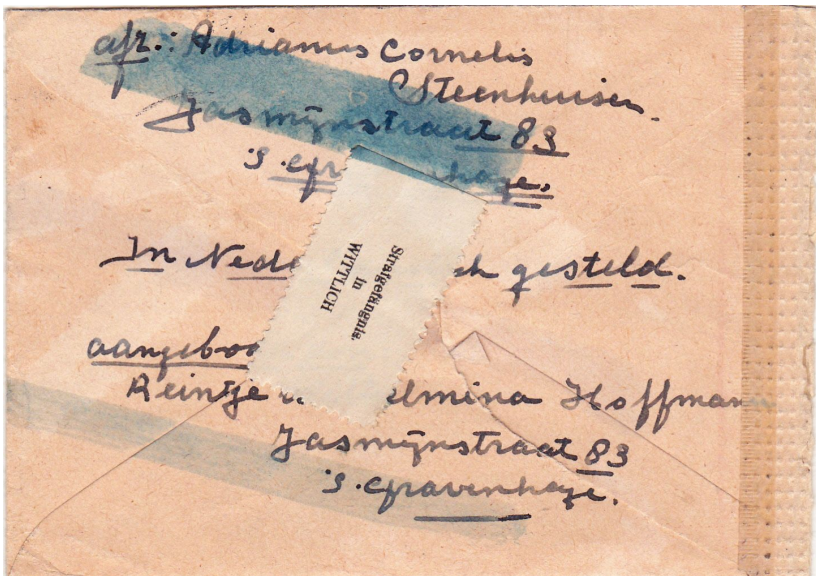 afz.: Adrianus Cornelis
Steenhuisen.
Jasmijnstraat 83
's Gr nhage.
In Nede ch gesteld.
Strafgefängnis.
in
WITTLICH
aangeboo
Reintje elmina Hoffmann
Jasmijnstraat 83
's Gravenhage.